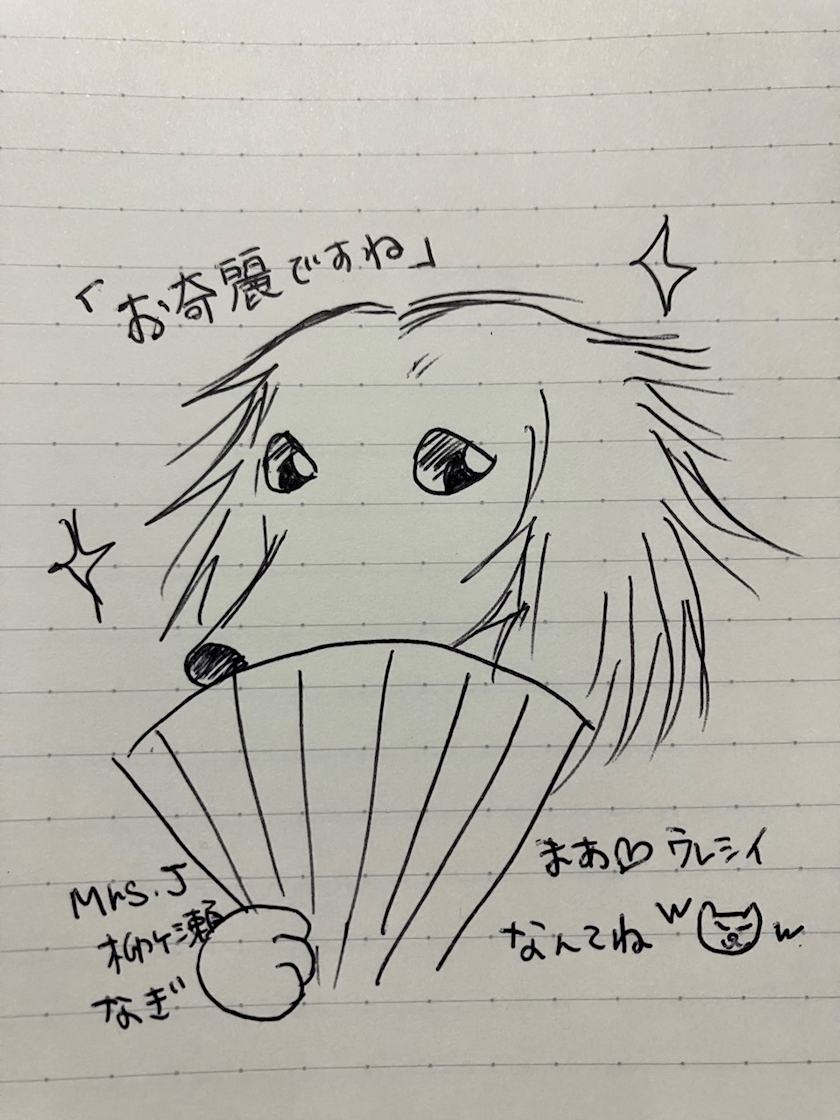 「お奇麗ですね」
まあ♡ウレシイ
なんてねw w
Mrs.J
柳ケ瀬
なぎ